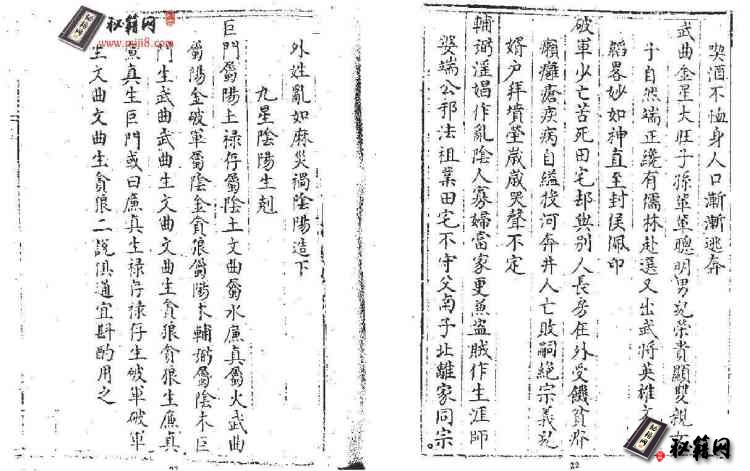 喫酒不恤身人口漸漸逃奔
武曲金星大旺子孫輩輩聰明男兒榮貴顯雙親女
子自然端正纔有儒林赴選又出武將英雄文
韜畧妙如神直至封侯佩印
破軍少亡苦死田宅却與別人長房在外受饑貧疥
癩癰瘡疾病自縊投河奔井人亡敗嗣絶宗義兒
婿户拜墳塋歲歲哭聲不定
輔弼淫娼作亂陰人寡婦當家更兼盜賊作生涯師
婆端公邪法祖業田宅不守父南子北離家同宗
22
外姓亂如麻災禍陰陽造下
九星陰陽生剋
巨門屬陽土禄存屬陰土文曲屬水廉真屬火武曲
屬陽金破軍屬陰金貪狼屬陽木輔弼屬陰木巨
門生武曲武曲生文曲文曲生貪狼貪狼生廉真
廉真生巨門或曰廉真生禄存禄存生破軍破軍
生文曲文曲生貪狼二説俱通宜斟酌用之
秘籍网
www.mji8.com
秘籍网